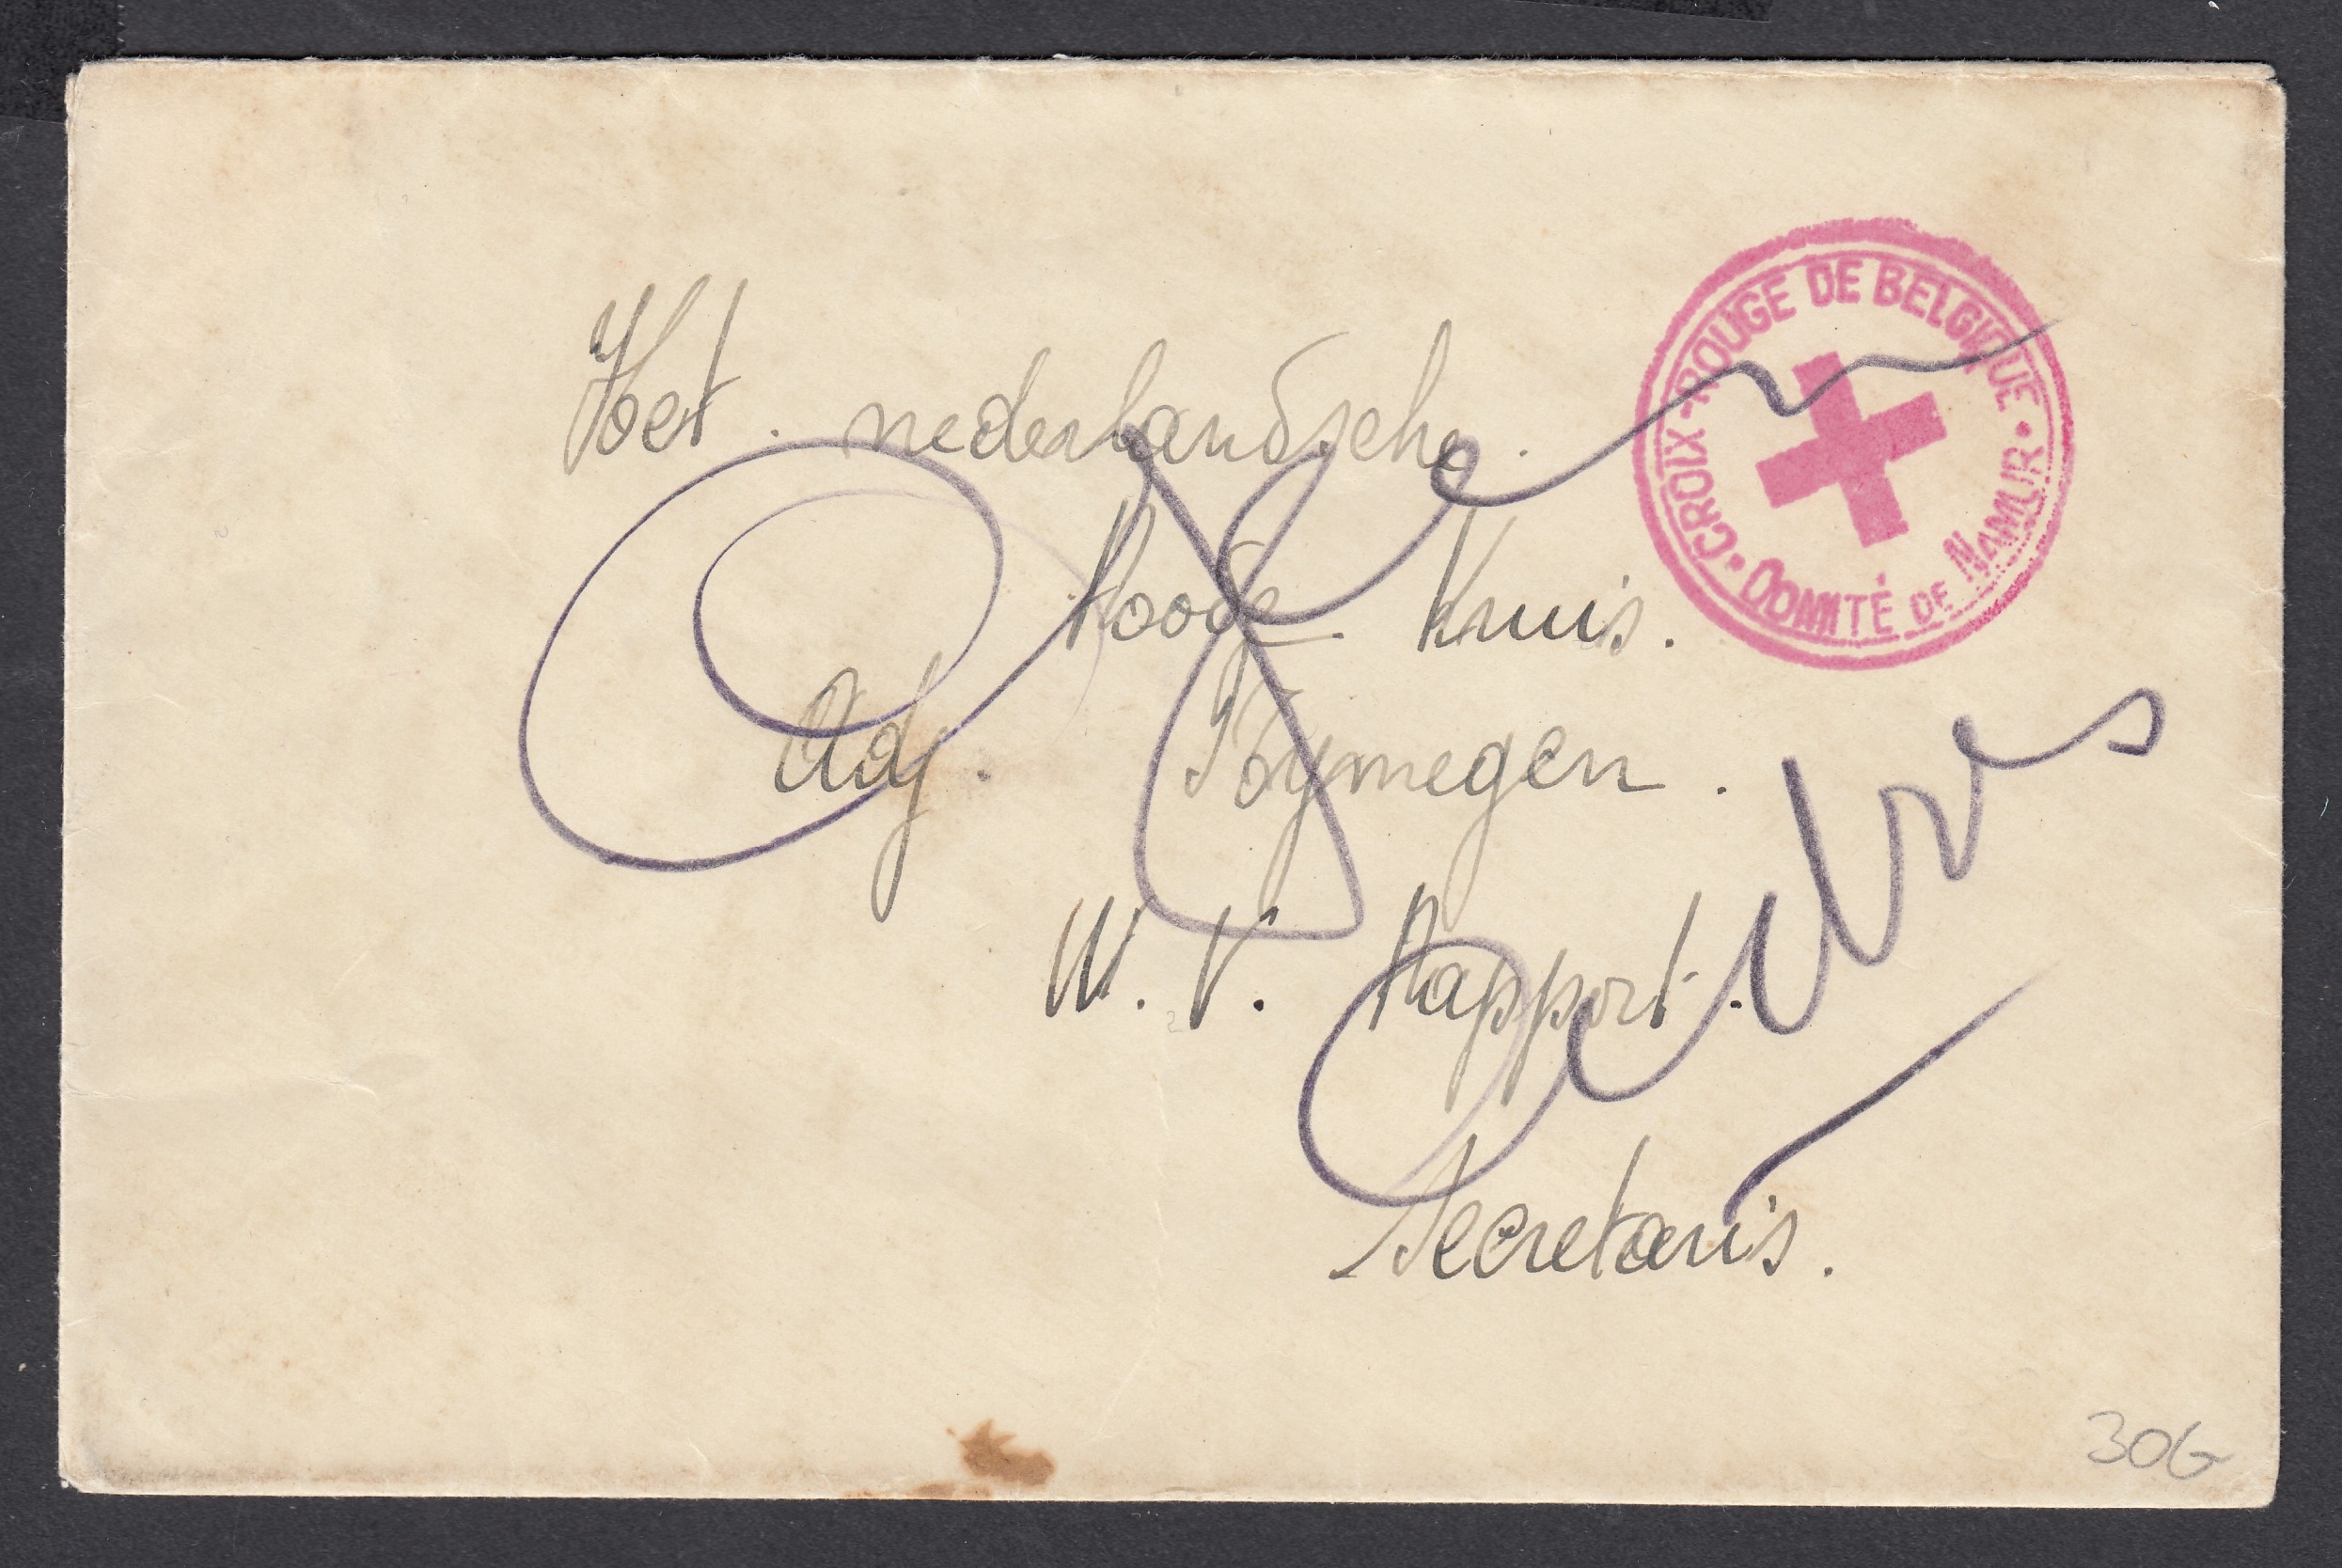 Het . nederlandsche .
Rooge . Kruis .
Adj . Nymegen .
W . V . Rapport .
Secretaris .
CROIX-ROUGE DE BELGIQUE
COMITÉ DE NAMUR
30G